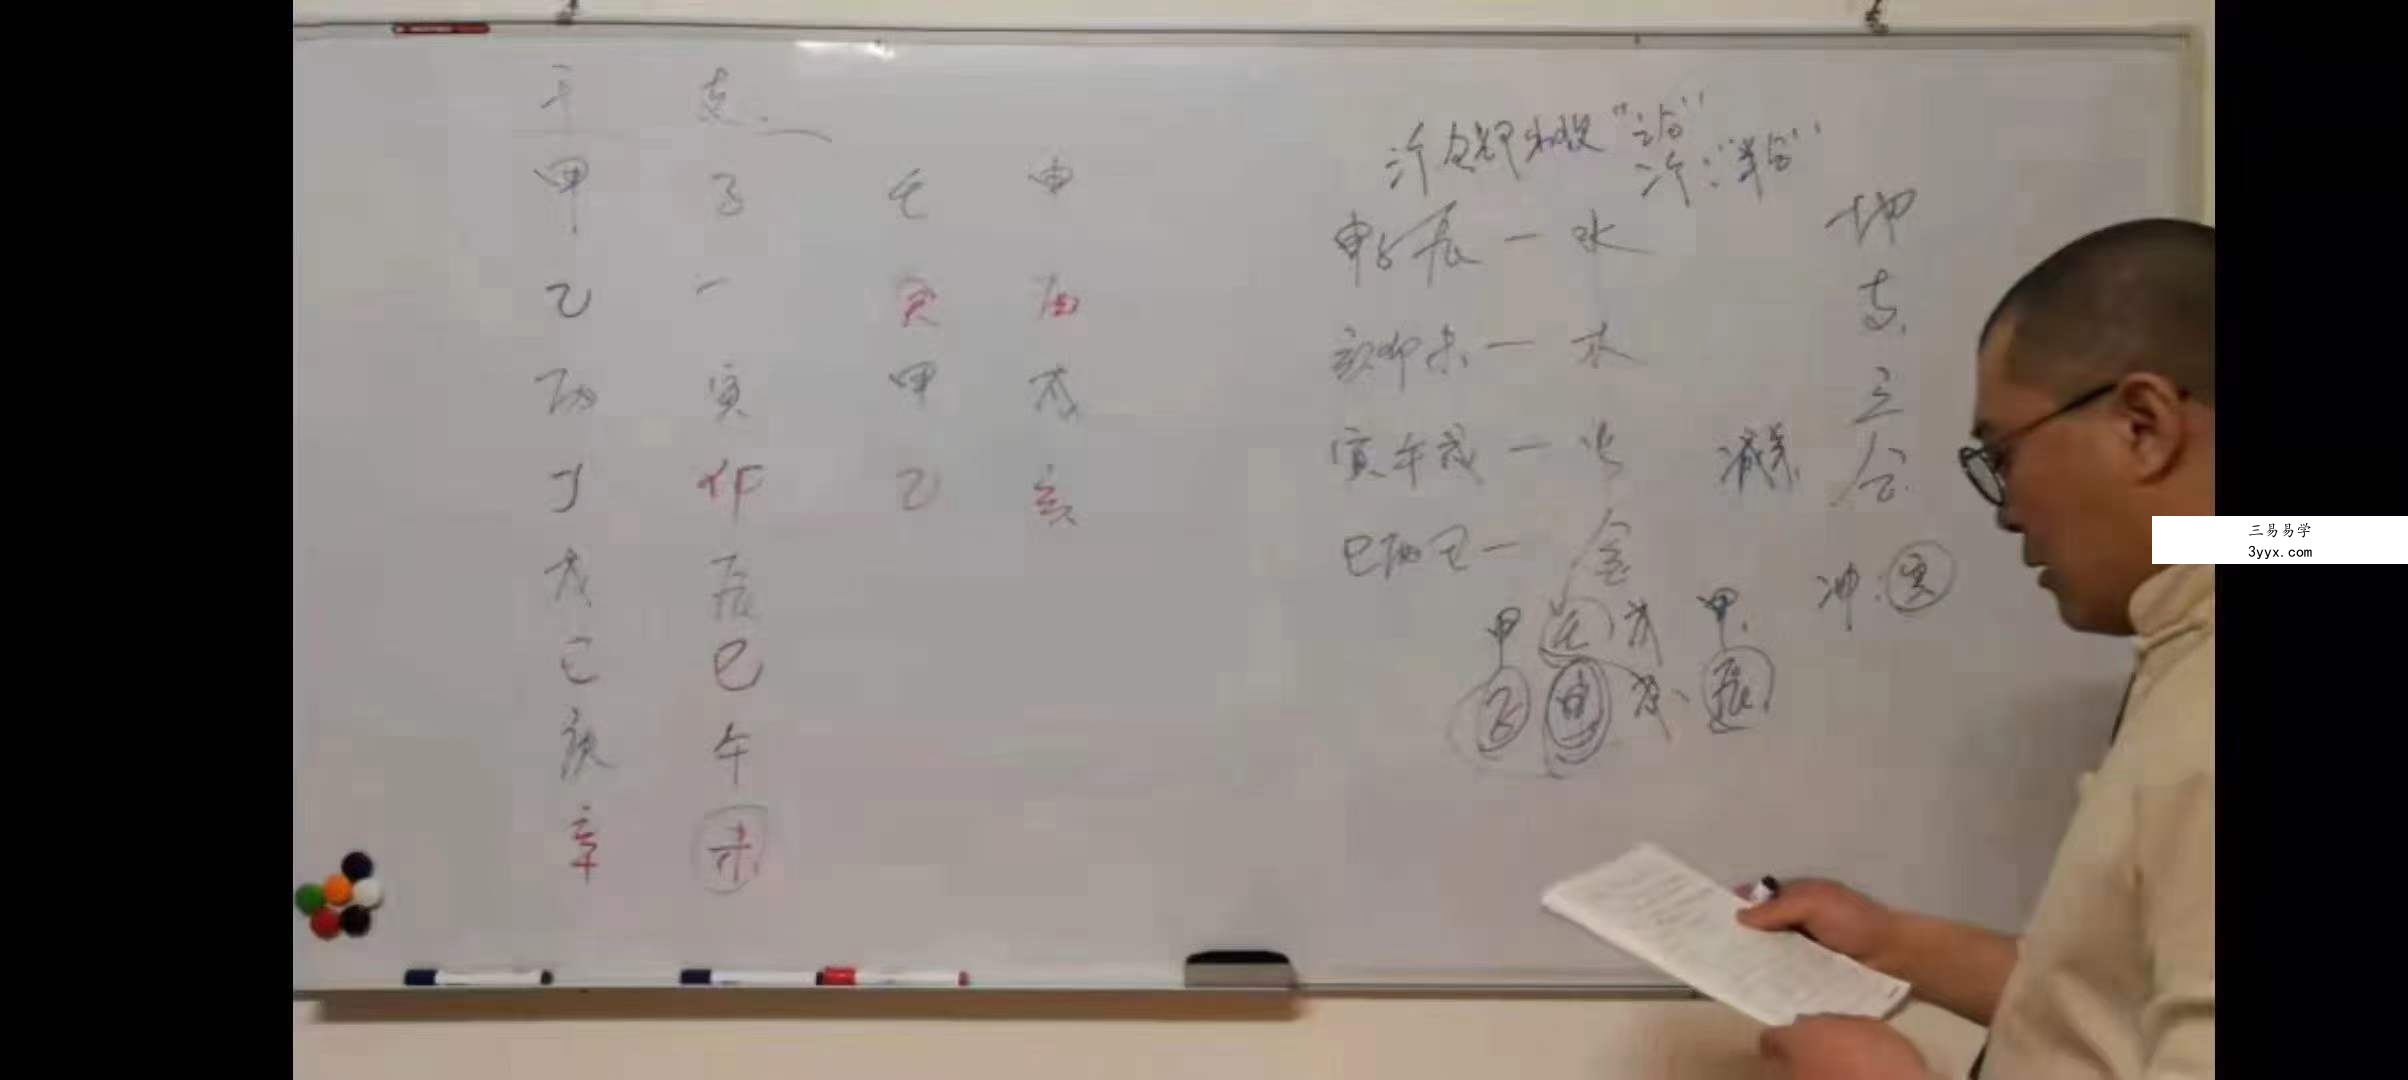 干 支
甲 子 壬 申
乙 一
丙 寅 甲 戌
丁 卯 乙 亥
戊 辰
己 巳
庚 午
辛 未
"三合"
"半合"
申子辰一水
亥卯未一木
寅午戌一火
巳酉丑一金
地支三合
甲 壬 戊 甲
子 申 戌 辰
冲:寅
三易易学
3yyx.com